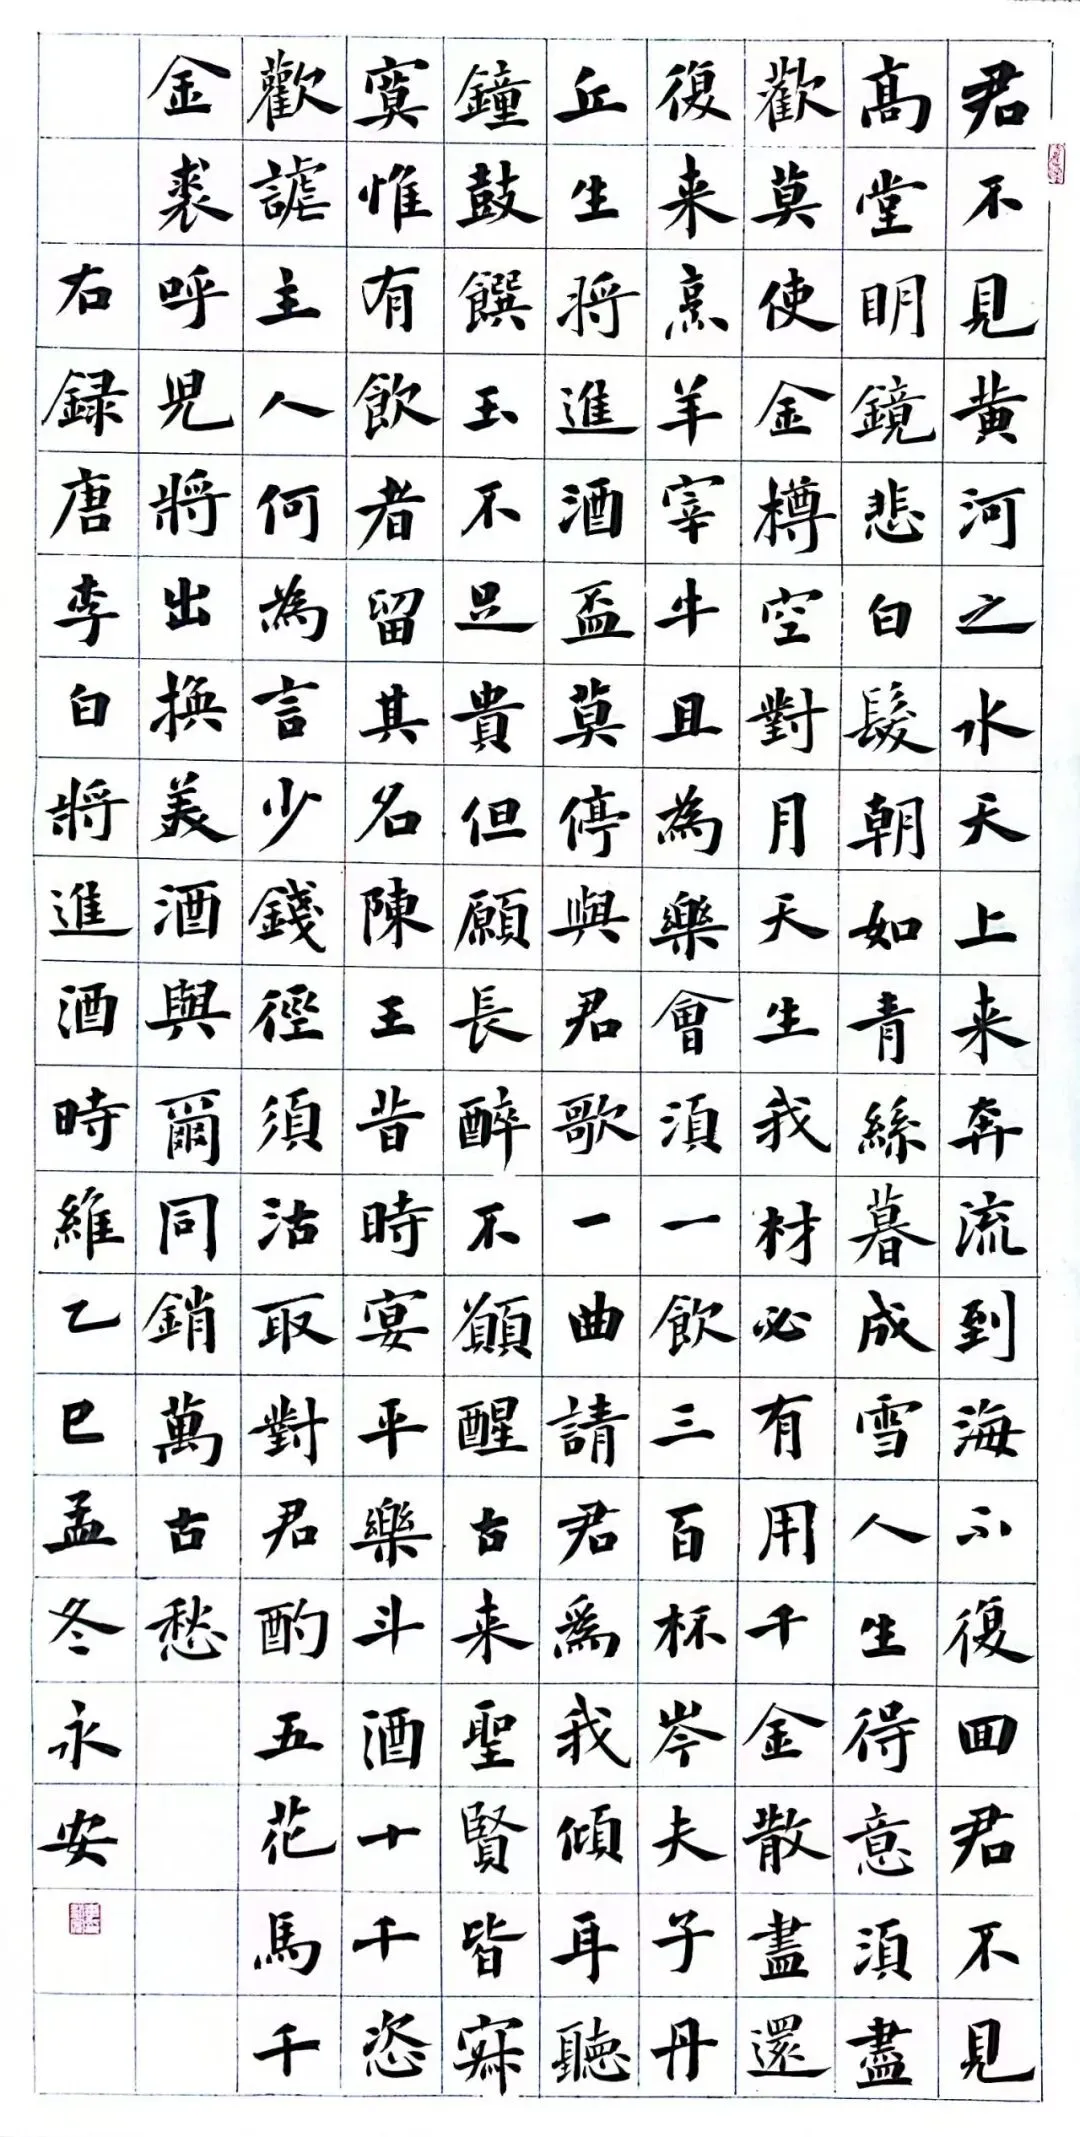 君不見黄河之水天上来奔流到海不復回君不見
高堂明鏡悲白髮朝如青絲暮成雪人生得意須盡
歡莫使金樽空對月天生我材必有用千金散盡還
復来烹羊宰牛且為樂會須一飲三百杯岑夫子丹
丘生將進酒盃莫停與君歌一曲請君爲我傾耳聽
鐘鼓饌玉不足貴但願長醉不願醒古来聖賢皆寂
寞惟有飲者留其名陳王昔時宴平樂斗酒十千恣
歡謔主人何為言少錢徑須沽取對君酌五花馬千
金裘呼兒將出換美酒與爾同銷萬古愁
右録唐李白將進酒時維乙巳孟冬永安